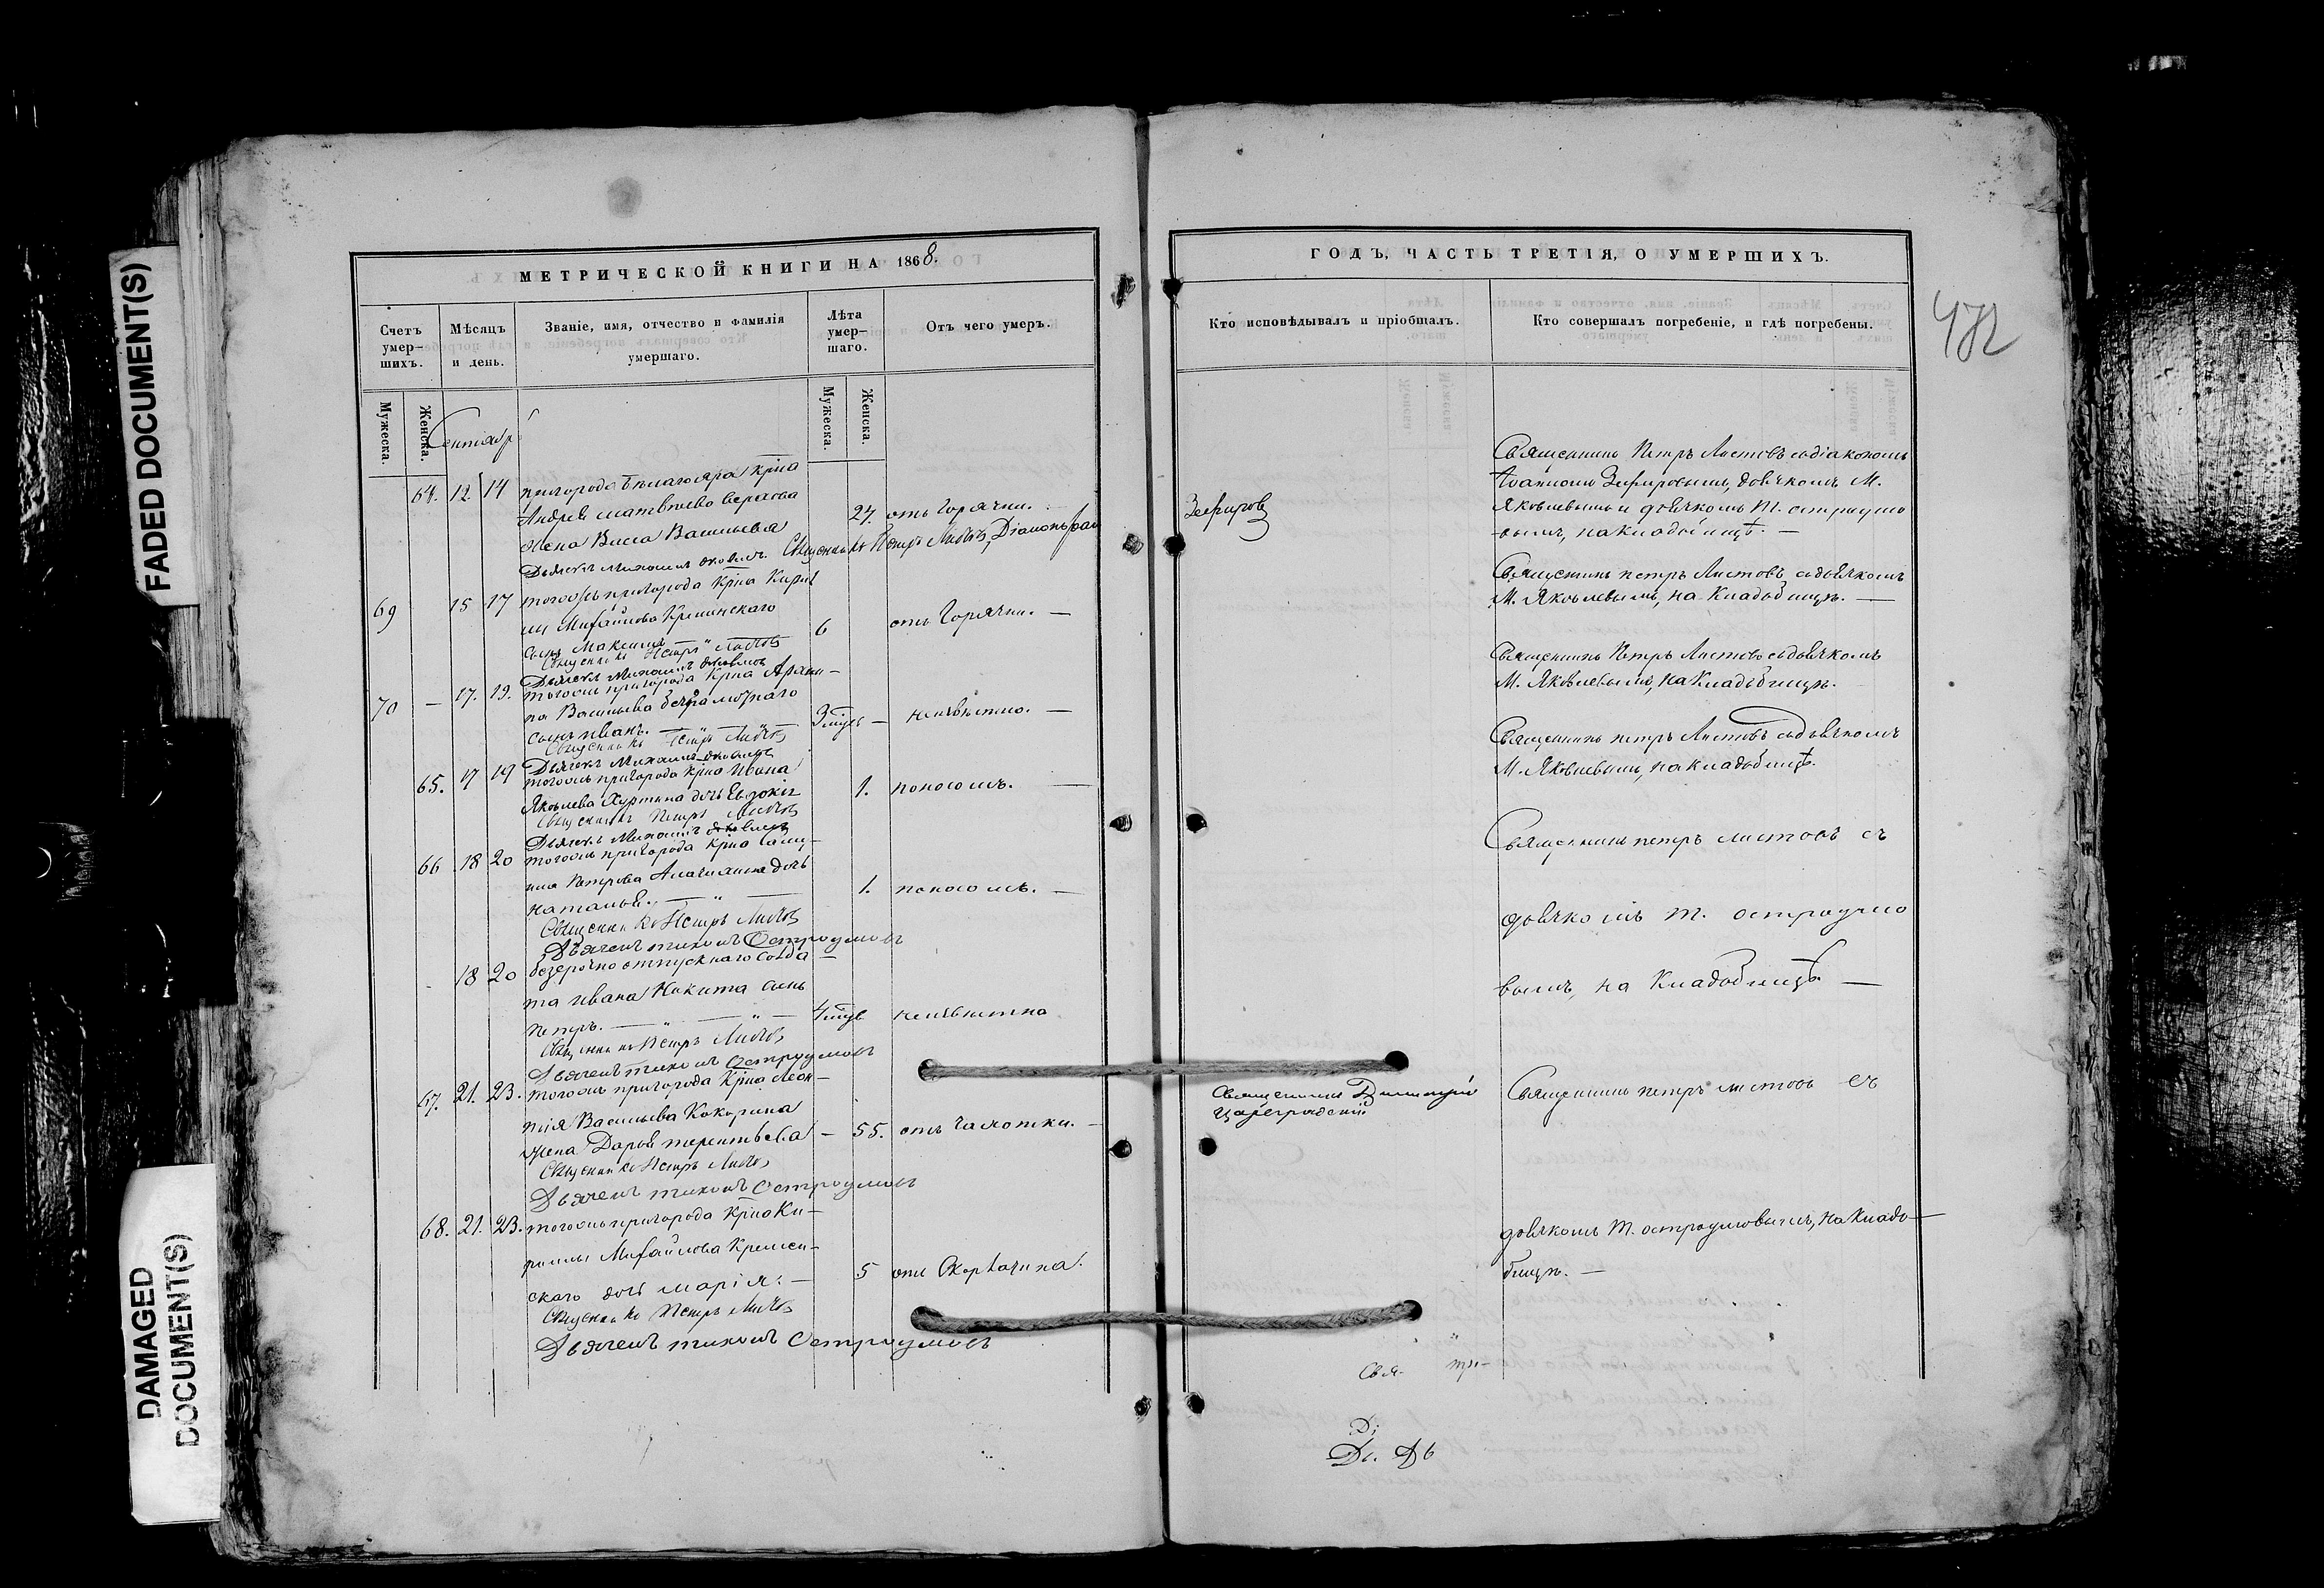 FADED DOCUMENT(S)
DAMAGED
DOCUMENT(S)
МЕТРИЧЕСКОЙ КНИГИ НА 1868.
Счетъ умер-шихъ.
Мѣсяцъ и день.
Званіе, имя, отчество и фамилія умершаго.
Лѣта умер-шаго.
Отъ чего умеръ.
Мужеска.
Женска.
Мужеска.
Женска.
Сентябрь
64. 12 14 пригорода Бѣлаго яра крна
Андрея Матвѣева
жена Васса Васильева 27. отъ горячки.
Дьячекъ Михаилъ Яковлевъ. Священникъ Петръ Листовъ, Діаконъ Іоан
69 15 17 тогожъ пригорода крна Кирил
лы Михайлова Кременскаго
сынъ Максимъ 6 отъ горячки. —
Священникъ Петръ Листовъ
Дьячекъ Михаилъ Яковлевъ
70 — 17. 19. тогожъ пригорода крна Архи-
па Васильева
сынъ Иванъ. 3 неизвѣстно. —
Священникъ Петръ Листовъ
Дьячекъ Михаилъ Яковлевъ
65. 17 19 тогожъ пригорода крна Ивана
Яковлева дочь Евдокія 1. поносомъ. —
Священникъ Петръ Листовъ
Дьячекъ Михаилъ Яковлевъ
66 18 20 тогожъ пригорода крна
Петрова дочь
Наталья. 1. поносомъ. —
Священникъ Петръ Листовъ
Дьячекъ Тихонъ Остроумовъ
18 20 безсрочно отпускнаго солда
та Ивана Никита сынъ
Петръ. 4 неизвѣстно
Священникъ Петръ Листовъ
Дьячекъ Тихонъ Остроумовъ
67. 21. 23. тогожъ пригорода крна Леон-
тія Васильева Кокорина
жена Дарья Терентьева — 55. отъ чахотки. —
Священникъ Петръ Листовъ
Дьячекъ Тихонъ Остроумовъ
68. 21. 23. тогожъ пригорода крна Ки-
риллы Михайлова Кремен-
скаго дочь Марія. — 5 отъ
Священникъ Петръ Листовъ
Дьячекъ Тихонъ Остроумовъ
ГОДЪ, ЧАСТЬ ТРЕТІЯ, О УМЕРШИХЪ.
Кто исповѣдывалъ и пріобщалъ.
Кто совершалъ погребеніе, и гдѣ погребены.
472
Зефировъ
Священникъ Петръ Листовъ съ діакономъ
Іоанномъ Зефировымъ, дьячкомъ М.
Яковлевымъ и дьячкомъ Т. Остроумо
вымъ, на кладбищѣ. —
Священникъ Петръ Листовъ съ дьячкомъ
М. Яковлевымъ, на кладбищѣ. —
Священникъ Петръ Листовъ съ дьячкомъ
М. Яковлевымъ, на кладбищѣ.
Священникъ Петръ Листовъ съ дьячкомъ
М. Яковлевымъ, на кладбищѣ.
Священникъ Петръ Листовъ съ
дьячкомъ Т. Остроумо
вымъ, на кладбищѣ —
Священникъ Димитрій
Цареградскій
Священникъ Петръ Листовъ съ
дьячкомъ Т. Остроумовымъ, на кладб-
бищѣ. —
Свя-
Ді
Ді. Дь